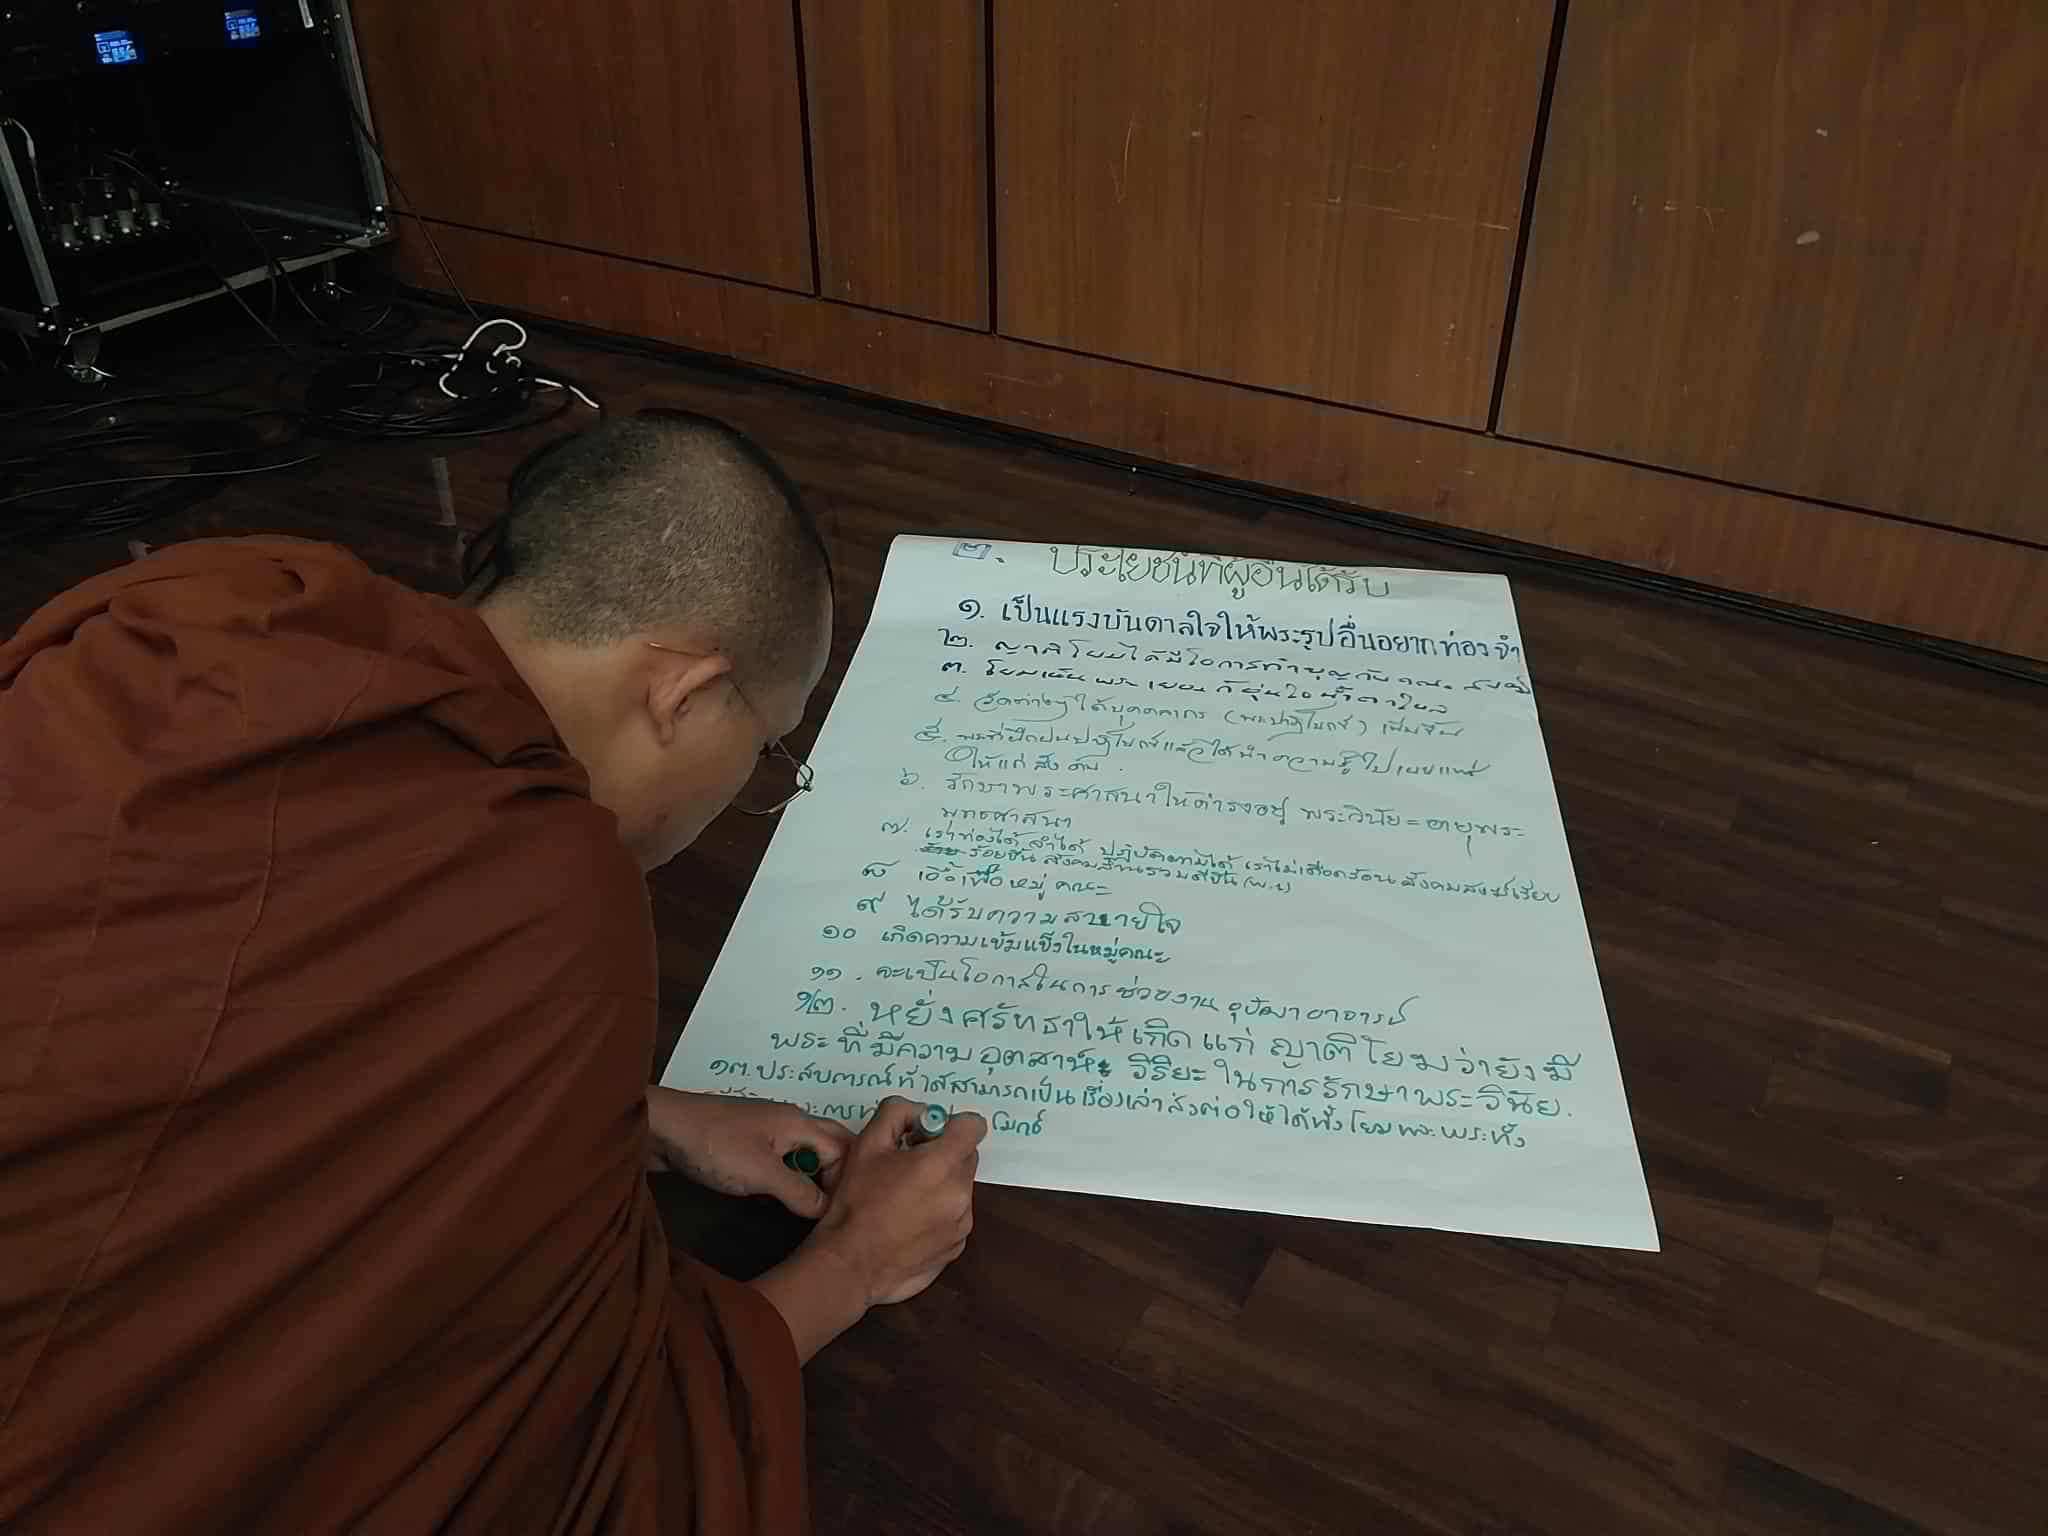 ๒. ประโยชน์ที่ผู้อื่นได้รับ
๑. เป็นแรงบันดาลใจให้พระรูปอื่นอยากท่องจำ
๒. ญาติโยมได้มีโอกาสทำบุญกับ
๓. โยมเห็นพระ ก็อุ่นใจ
๔. วัดต่างๆ ได้บุคคลากร (พระปาฏิโมกข์) เพิ่มขึ้น
๕. พระที่ฝึกฝนปาฏิโมกข์แล้วได้นำความรู้ไปเผยแพร่
ให้แก่
๖. รักษาพระศาสนาให้ดำรงอยู่ พระวินัย = อายุพระ
พุทธศาสนา
๗. เราท่องได้ จำได้ ปฏิบัติตามได้ เราไม่เดือดร้อน สังคมสงฆ์เรียบ
ร้อยขึ้น
๘ เอื้อเฟื้อหมู่คณะ
๙ ได้รับความสบายใจ
๑๐ เกิดความเข้มแข็งในหมู่คณะ
๑๑. จะเป็นโอกาสในการช่วยงาน อุปัชฌาอาจารย์
๑๒. หยั่งศรัทธาให้เกิดแก่ ญาติโยมว่ายังมี
พระที่มีความอุตสาห์ะ วิริยะในการรักษาพระวินัย.
๑๓. ประสบการณ์ที่ได้สามารถเป็นเรื่องเล่าส่งต่อให้ได้ทั้งโยมและพระทั้ง
โมกข์